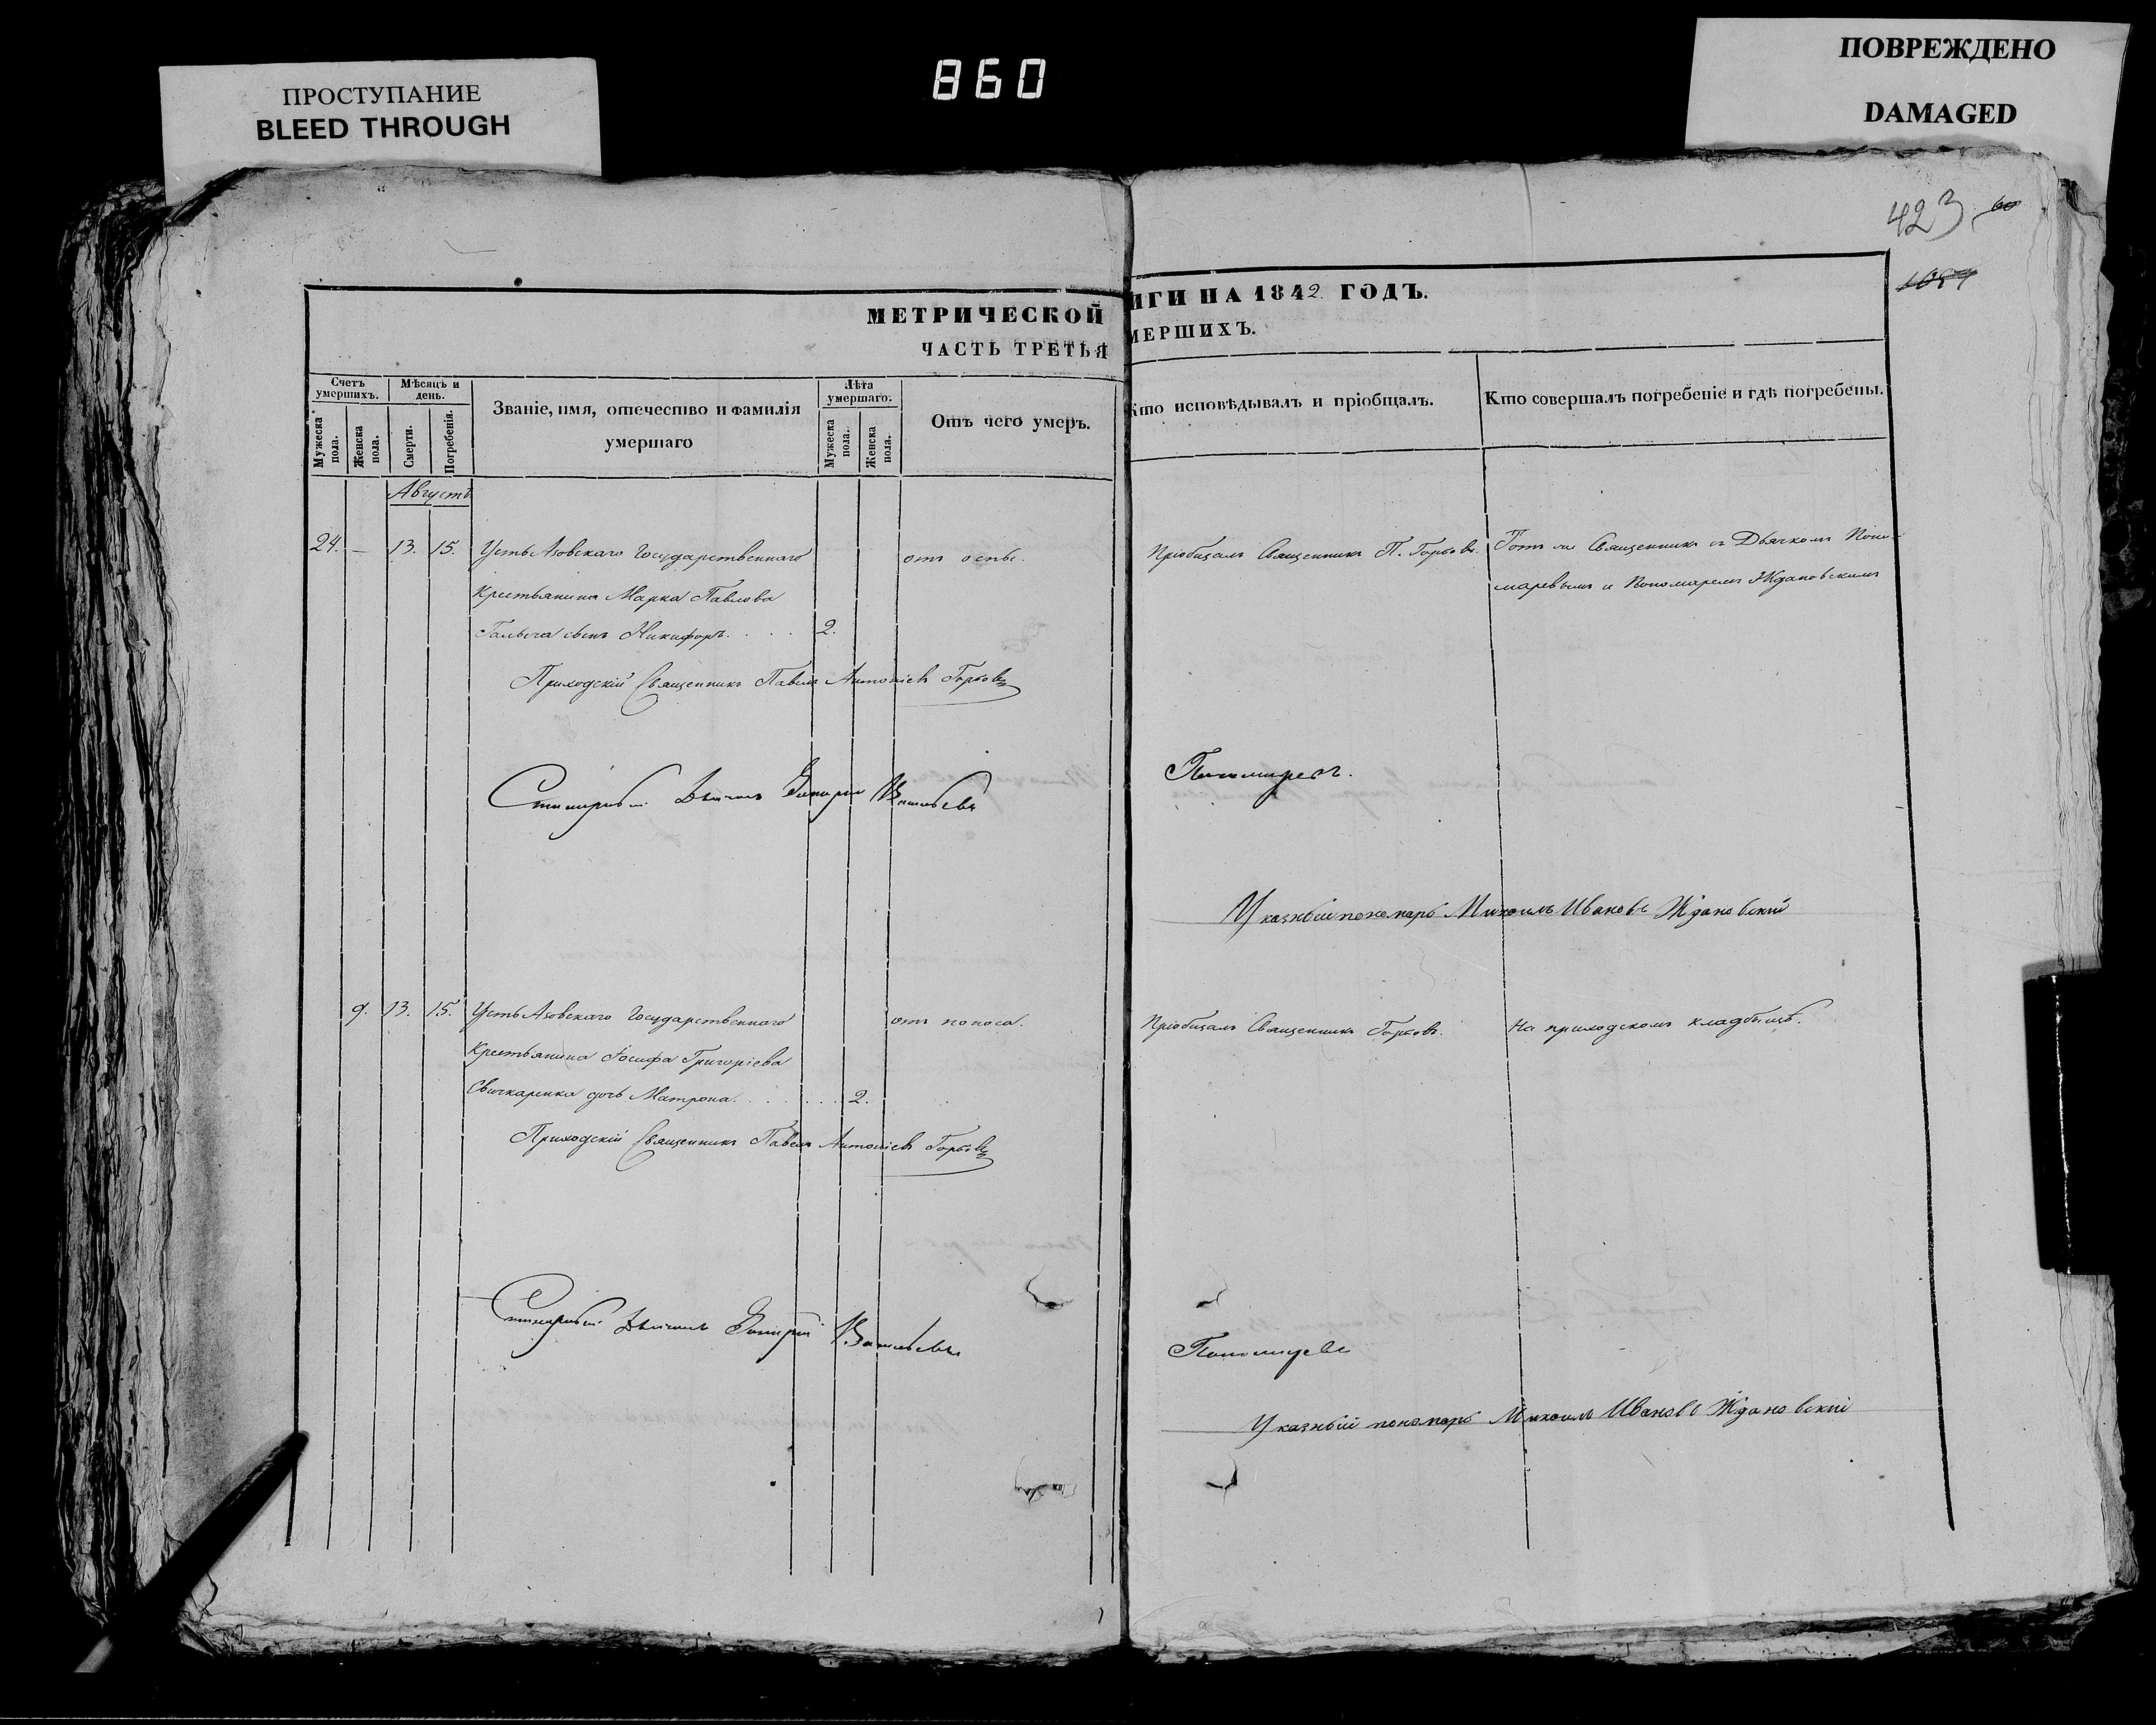 ПРОСТУПАНИЕ
BLEED THROUGH
860
ПОВРЕЖДЕНО
DAMAGED
423
МЕТРИЧЕСКОЙ
ИГИ НА 1842 ГОДЪ.
ЧАСТЬ ТРЕТЬЯ
МЕРШИХЪ.
Счетъ умершихъ.
Мужеска пола.
Женска пола.
Мѣсяцъ и день.
Смерти.
Погребенія.
Званіе, имя, отечество и фамилія
умершаго
Лѣта умершаго.
Мужеска пола.
Женска пола.
Отъ чего умеръ.
Кто исповѣдывалъ и пріобщалъ.
Кто совершалъ погребеніе и гдѣ погребены.
Августъ
24. — 13. 15. Усть Азовскаго Государственнаго отъ оспы. Пріобщалъ Священникъ П. Горбовъ. Тотъ же Священникъ съ Дьячкомъ Поно-
Крестьянина Марка Павлова маревымъ и Пономаремъ Ждановскимъ
сынъ Никифоръ. . . . 2.
Приходскій Священникъ Павелъ Антоніевъ Горбовъ
Дьячокъ Пономаревъ.
Указный пономарь Михаилъ Ивановъ Ждановскій
9. 13. 15. Усть Азовскаго Государственнаго отъ поноса. Пріобщалъ Священникъ Горбовъ. На приходскомъ кладбищѣ.
Крестьянина Іосифа Григоріева
Свичкаренка дочь Матрона. . . . . . . 2.
Приходскій Священникъ Павелъ Антоніевъ Горбовъ
Дьячокъ Пономаревъ
Указный пономарь Михаилъ Ивановъ Ждановскій